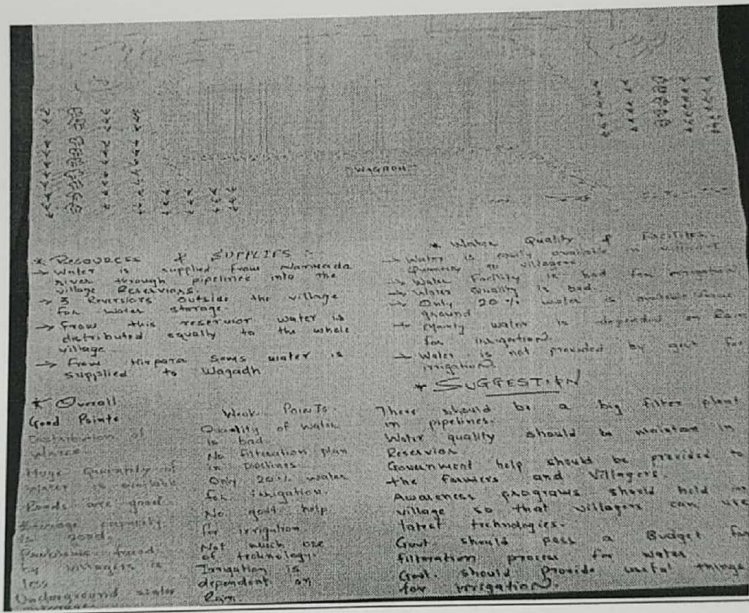 WAGADH
* RESOURCES & SUPPLIES :-
→ Water is supplied from Narmada
river through pipelines into the
village Reserviors.
→ 3 Reversiors outside the village
for water storage.
→ From this reservior water is
distributed equally to the whole
village.
→ From Hirpara Sems water is
supplied to Wagadh
* Water Quality & Facilities.
→ Water is easily available in
quantity to villagers
→ Water Facility is bad for irrigation
→ Water Quality is bad.
→ Only 20% water is available
ground
→ Mainly water is dependent on Rain
for irrigation.
→ Water is not provided by govt for
irrigation.
* Overall
Good Points
Distribution of
Water.
Huge Quantity of
water is available
Roads are good.
Drainage capacity
is good.
Problems faced
by villagers is
less
Underground water
Weak Points.
Quality of water
is bad.
No Filteration plan
in Pipelines.
Only 20% water
for irrigation.
No govt help
for irrigation.
Not much use
of technology.
Irrigation is
dependent on
Rain
* SUGGESTION
There should be a big filter plant
in pipelines.
Water quality should be maintain in
Reservior
Government help should be provided to
the farmers and villagers.
Awareness programs should held in
village so that villagers can use
latest technologies.
Govt should pass a Budget for
filteration process for water
Govt. should provide useful things
for irrigation.